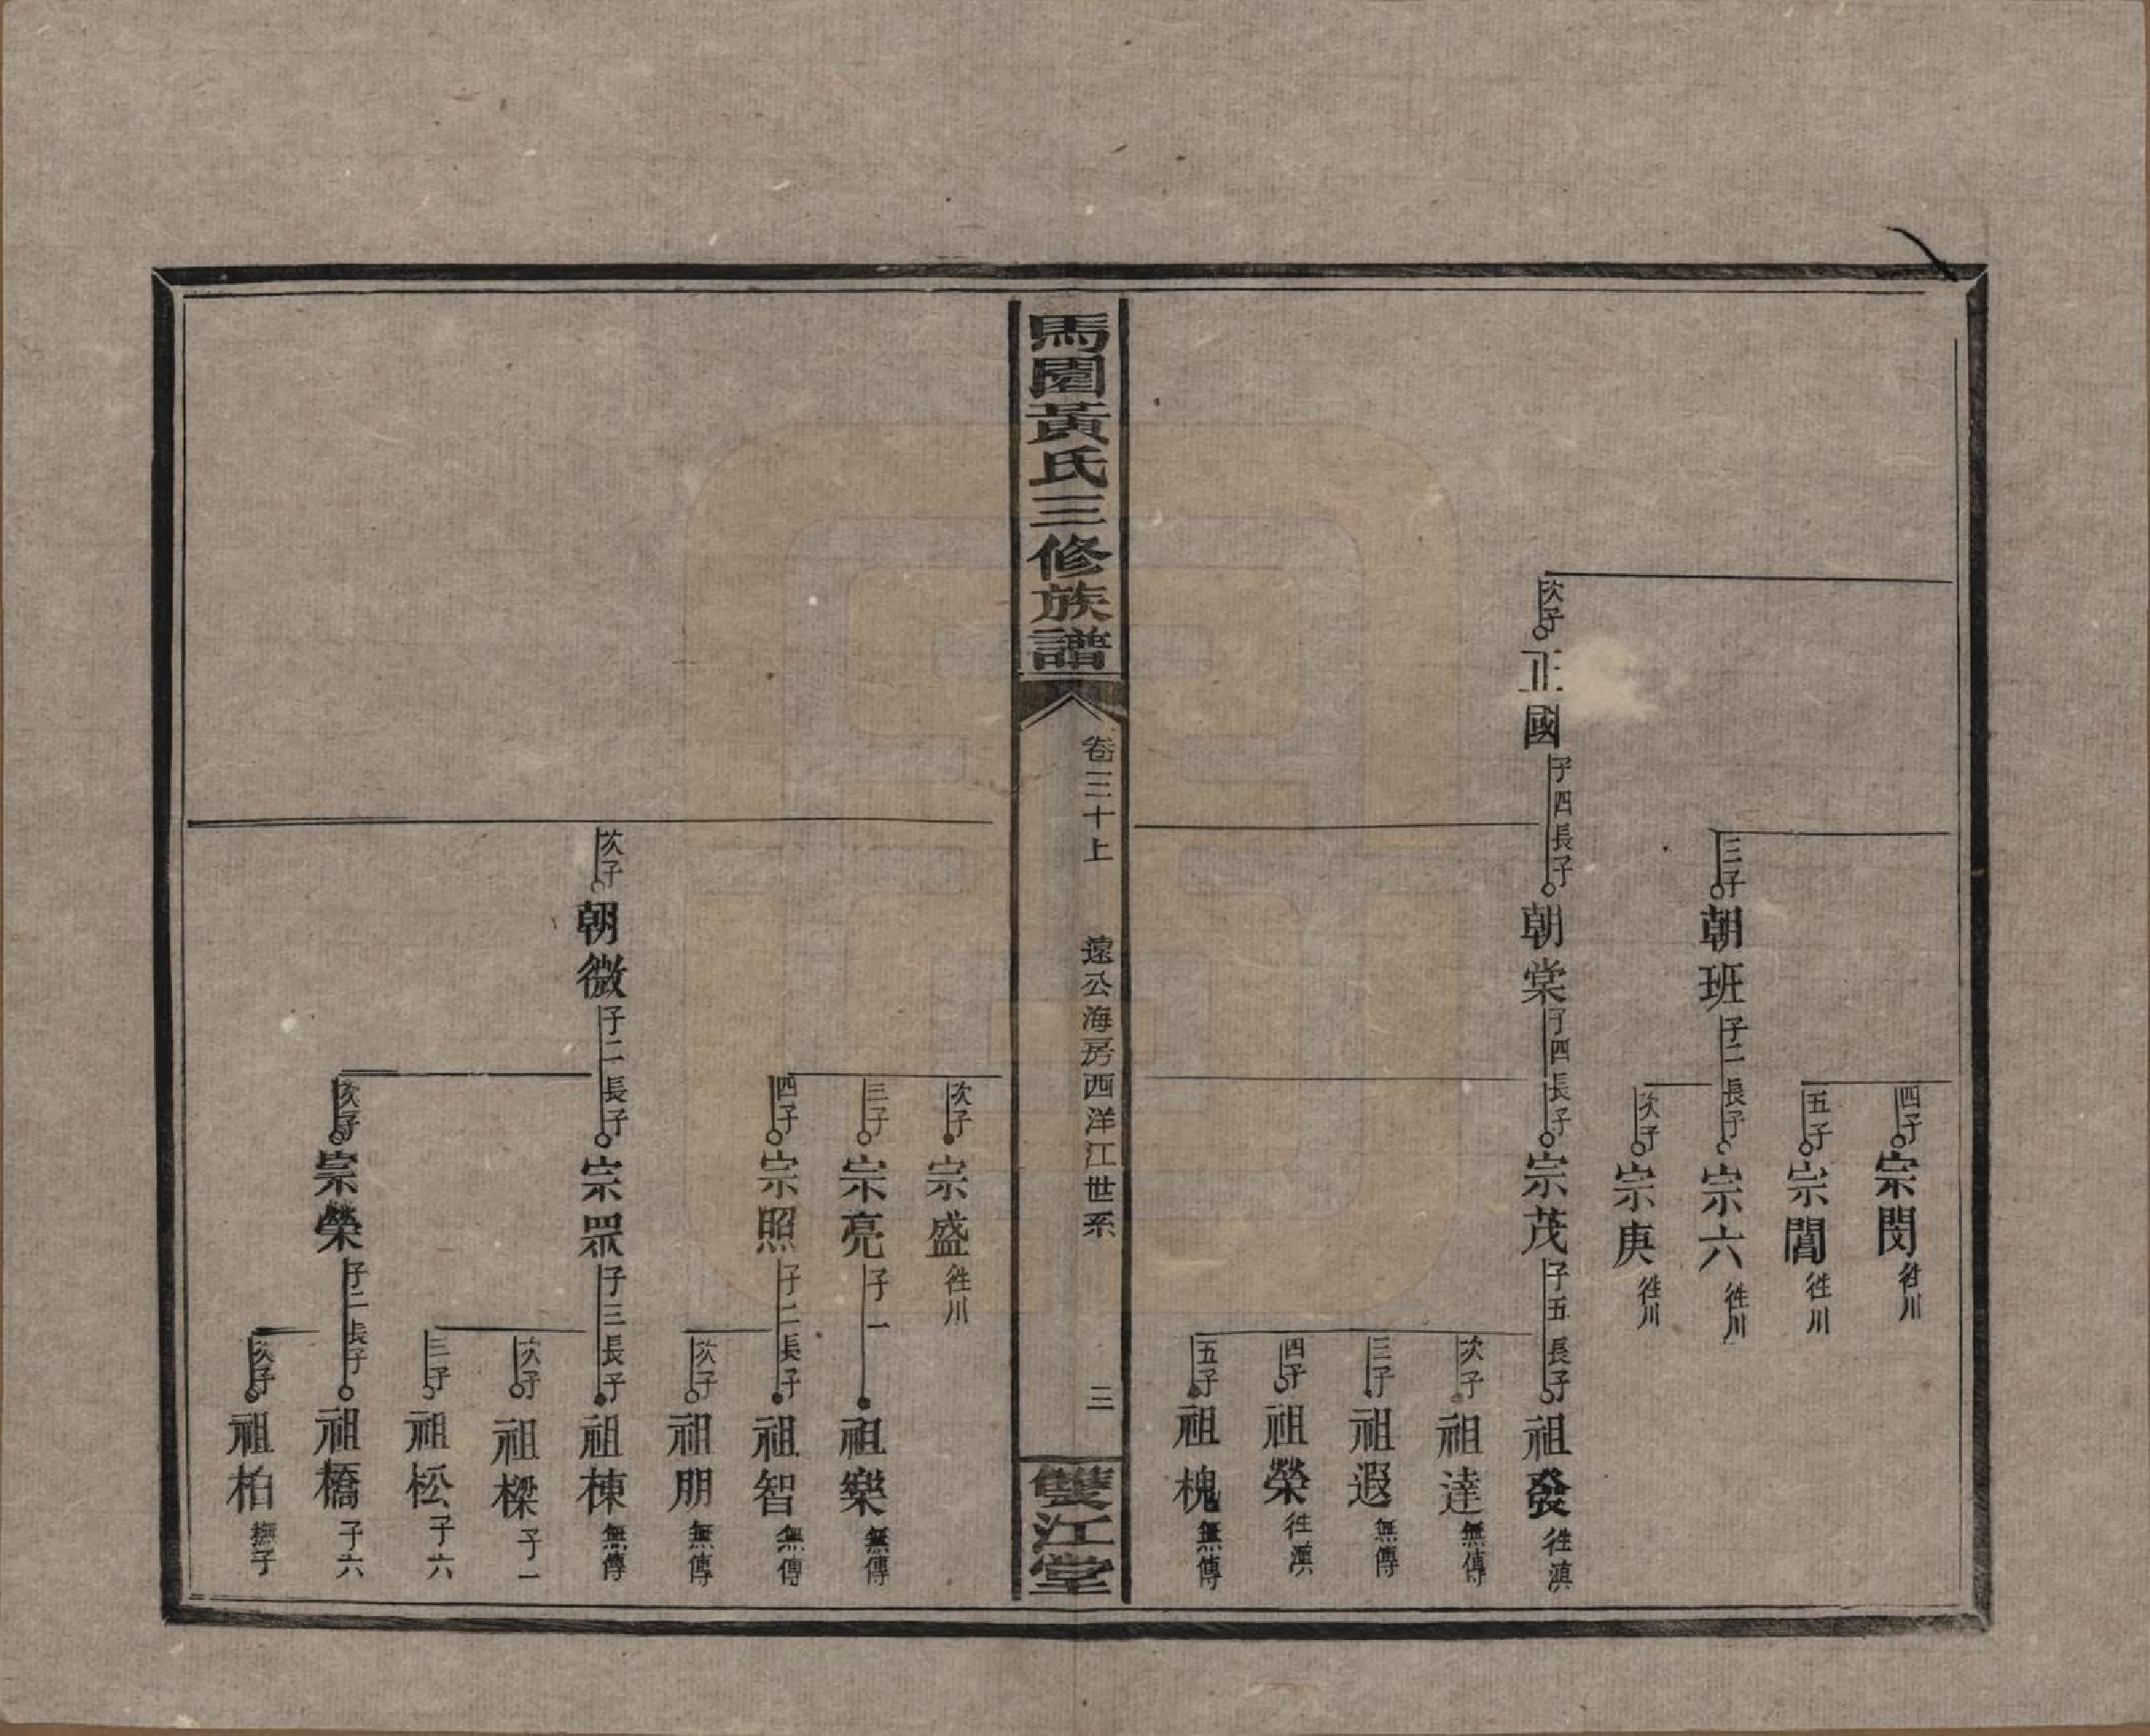 四子 宗閔 徃川
五子 宗誾 徃川
三子 朝班 子二 長子 宗六 徃川
次子 宗庚 徃川
次子 正國 子四 長子 朝棠 子四 長子 宗茂 子五 長子 祖發 徃滇
次子 祖達 無傳
三子 祖遐 無傳
四子 祖榮 徃滇
五子 祖槐 無傳
馬園黃氏三修族譜
卷三十上 遠公海房西洋江世系 三
雙江堂
次子 宗盛 徃川
三子 宗亮 子一 祖樂 無傳
四子 宗照 子二 長子 祖智 無傳
次子 祖朋 無傳
次子 朝微 子二 長子 宗眾 子三 長子 祖棟 無傳
次子 祖樑 子一
三子 祖松 子六
次子 宗榮 子二 長子 祖橋 子六
次子 祖柏 撫子